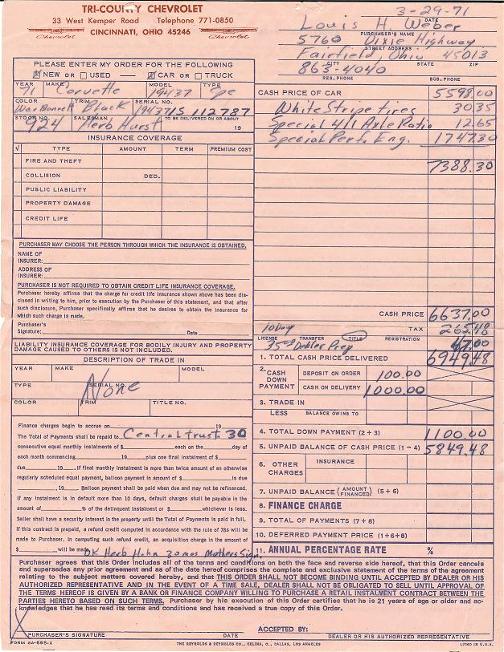 TRI-COUNTY CHEVROLET
33 West Kemper Road Telephone 771-0850
Chevrolet CINCINNATI, OHIO 45246 Chevrolet
3-29-71
DATE
Louis H. Weber
PURCHASER'S NAME
5760 Dixie Highway
STREET ADDRESS
Fairfield, Ohio 45013
CITY STATE ZIP
863-4040
RES. PHONE BUS. PHONE
PLEASE ENTER MY ORDER FOR THE FOLLOWING
NEW OR USED CAR OR TRUCK
YEAR MAKE MODEL TYPE
71 Corvette 19437 Cpe
COLOR TRIM SERIAL NO.
War Bonnett Black 194371S 112787
STOCK NO. SALESMAN TO BE DELIVERED ON OR ABOUT
924 Herb Hurst 19
INSURANCE COVERAGE
TYPE AMOUNT TERM PREMIUM COST
FIRE AND THEFT
COLLISION DED.
PUBLIC LIABILITY
PROPERTY DAMAGE
CREDIT LIFE
PURCHASER MAY CHOOSE THE PERSON THROUGH WHICH THE INSURANCE IS OBTAINED.
NAME OF INSURER:
ADDRESS OF INSURER:
PURCHASER IS NOT REQUIRED TO OBTAIN CREDIT LIFE INSURANCE COVERAGE.
Purchaser hereby affirms that the charge for credit life insurance shown above has been disclosed in writing to him, prior to execution by the Purchaser of this statement, and that after such disclosure, Purchaser specifically affirms that he desires to obtain the insurance for which such charge is made.
Purchaser's Signature Date
LIABILITY INSURANCE COVERAGE FOR BODILY INJURY AND PROPERTY DAMAGE CAUSED TO OTHERS IS NOT INCLUDED.
DESCRIPTION OF TRADE IN
YEAR MAKE MODEL
TYPE SERIAL NO.
None
COLOR TRIM TITLE NO.
CASH PRICE OF CAR 5598.00
White Stripe tires 30.35
Special 4/11 Axle Ratio 12.65
Special Perf. Eng. 1747.30
7388.30
CASH PRICE 6637.00
10 Day TAX 265.48
LICENSE TRANSFER TITLE REGISTRATION
47.00
1. TOTAL CASH PRICE DELIVERED 6949.48
2. CASH DOWN PAYMENT
DEPOSIT ON ORDER 100.00
CASH ON DELIVERY 1000.00
3. TRADE IN
LESS BALANCE OWING TO
4. TOTAL DOWN PAYMENT (2 + 3) 1100.00
5. UNPAID BALANCE OF CASH PRICE (1 - 4) 5849.48
6. OTHER CHARGES INSURANCE
7. UNPAID BALANCE (AMOUNT FINANCED) (5 + 6)
8. FINANCE CHARGE
9. TOTAL OF PAYMENTS (7 + 8)
10. DEFERRED PAYMENT PRICE (1+6+8)
11. ANNUAL PERCENTAGE RATE %
Finance charges begin to accrue on 19
The Total of Payments shall be repaid to Central Trust 30
consecutive equal monthly instalments of $ each on the day of
each month commencing 19 plus one final instalment of $
due 19 . If final monthly instalment is more than twice amount of an otherwise
regularly scheduled equal payment, balloon payment in amount of $ is due
19 . Balloon payment shall be paid when due and may not be refinanced.
If any instalment is in default more than 10 days, default charges shall be payable in the
amount of % of the delinquent instalment or $ whichever is less.
Seller shall have a security interest in the property until the Total of Payments is paid in full.
If this contract is prepaid, a refund credit computed in accordance with the rule of 78s will be
made to Purchaser. In computing such refund credit, an acquisition charge in the amount of
$ will be made
OK Herb Hahn 30 mos Mothers Sig!!
Purchaser agrees that this Order includes all of the terms and conditions on both the face and reverse side hereof, that this Order cancels and supersedes any prior agreement and as of the date hereof comprises the complete and exclusive statement of the terms of the agreement relating to the subject matters covered hereby, and that THIS ORDER SHALL NOT BECOME BINDING UNTIL ACCEPTED BY DEALER OR HIS AUTHORIZED REPRESENTATIVE AND IN THE EVENT OF A TIME SALE, DEALER SHALL NOT BE OBLIGATED TO SELL UNTIL APPROVAL OF THE TERMS HEREOF IS GIVEN BY A BANK OR FINANCE COMPANY WILLING TO PURCHASE A RETAIL INSTALMENT CONTRACT BETWEEN THE PARTIES HERETO BASED ON SUCH TERMS. Purchaser by his execution of this Order certifies that he is 21 years of age or older and acknowledges that he has read its terms and conditions and has received a true copy of this Order.
X
PURCHASER'S SIGNATURE DATE
ACCEPTED BY:
DEALER OR HIS AUTHORIZED REPRESENTATIVE
THE REYNOLDS & REYNOLDS CO., CELINA, O., DALLAS, LOS ANGELES
LITHO IN U.S.A.